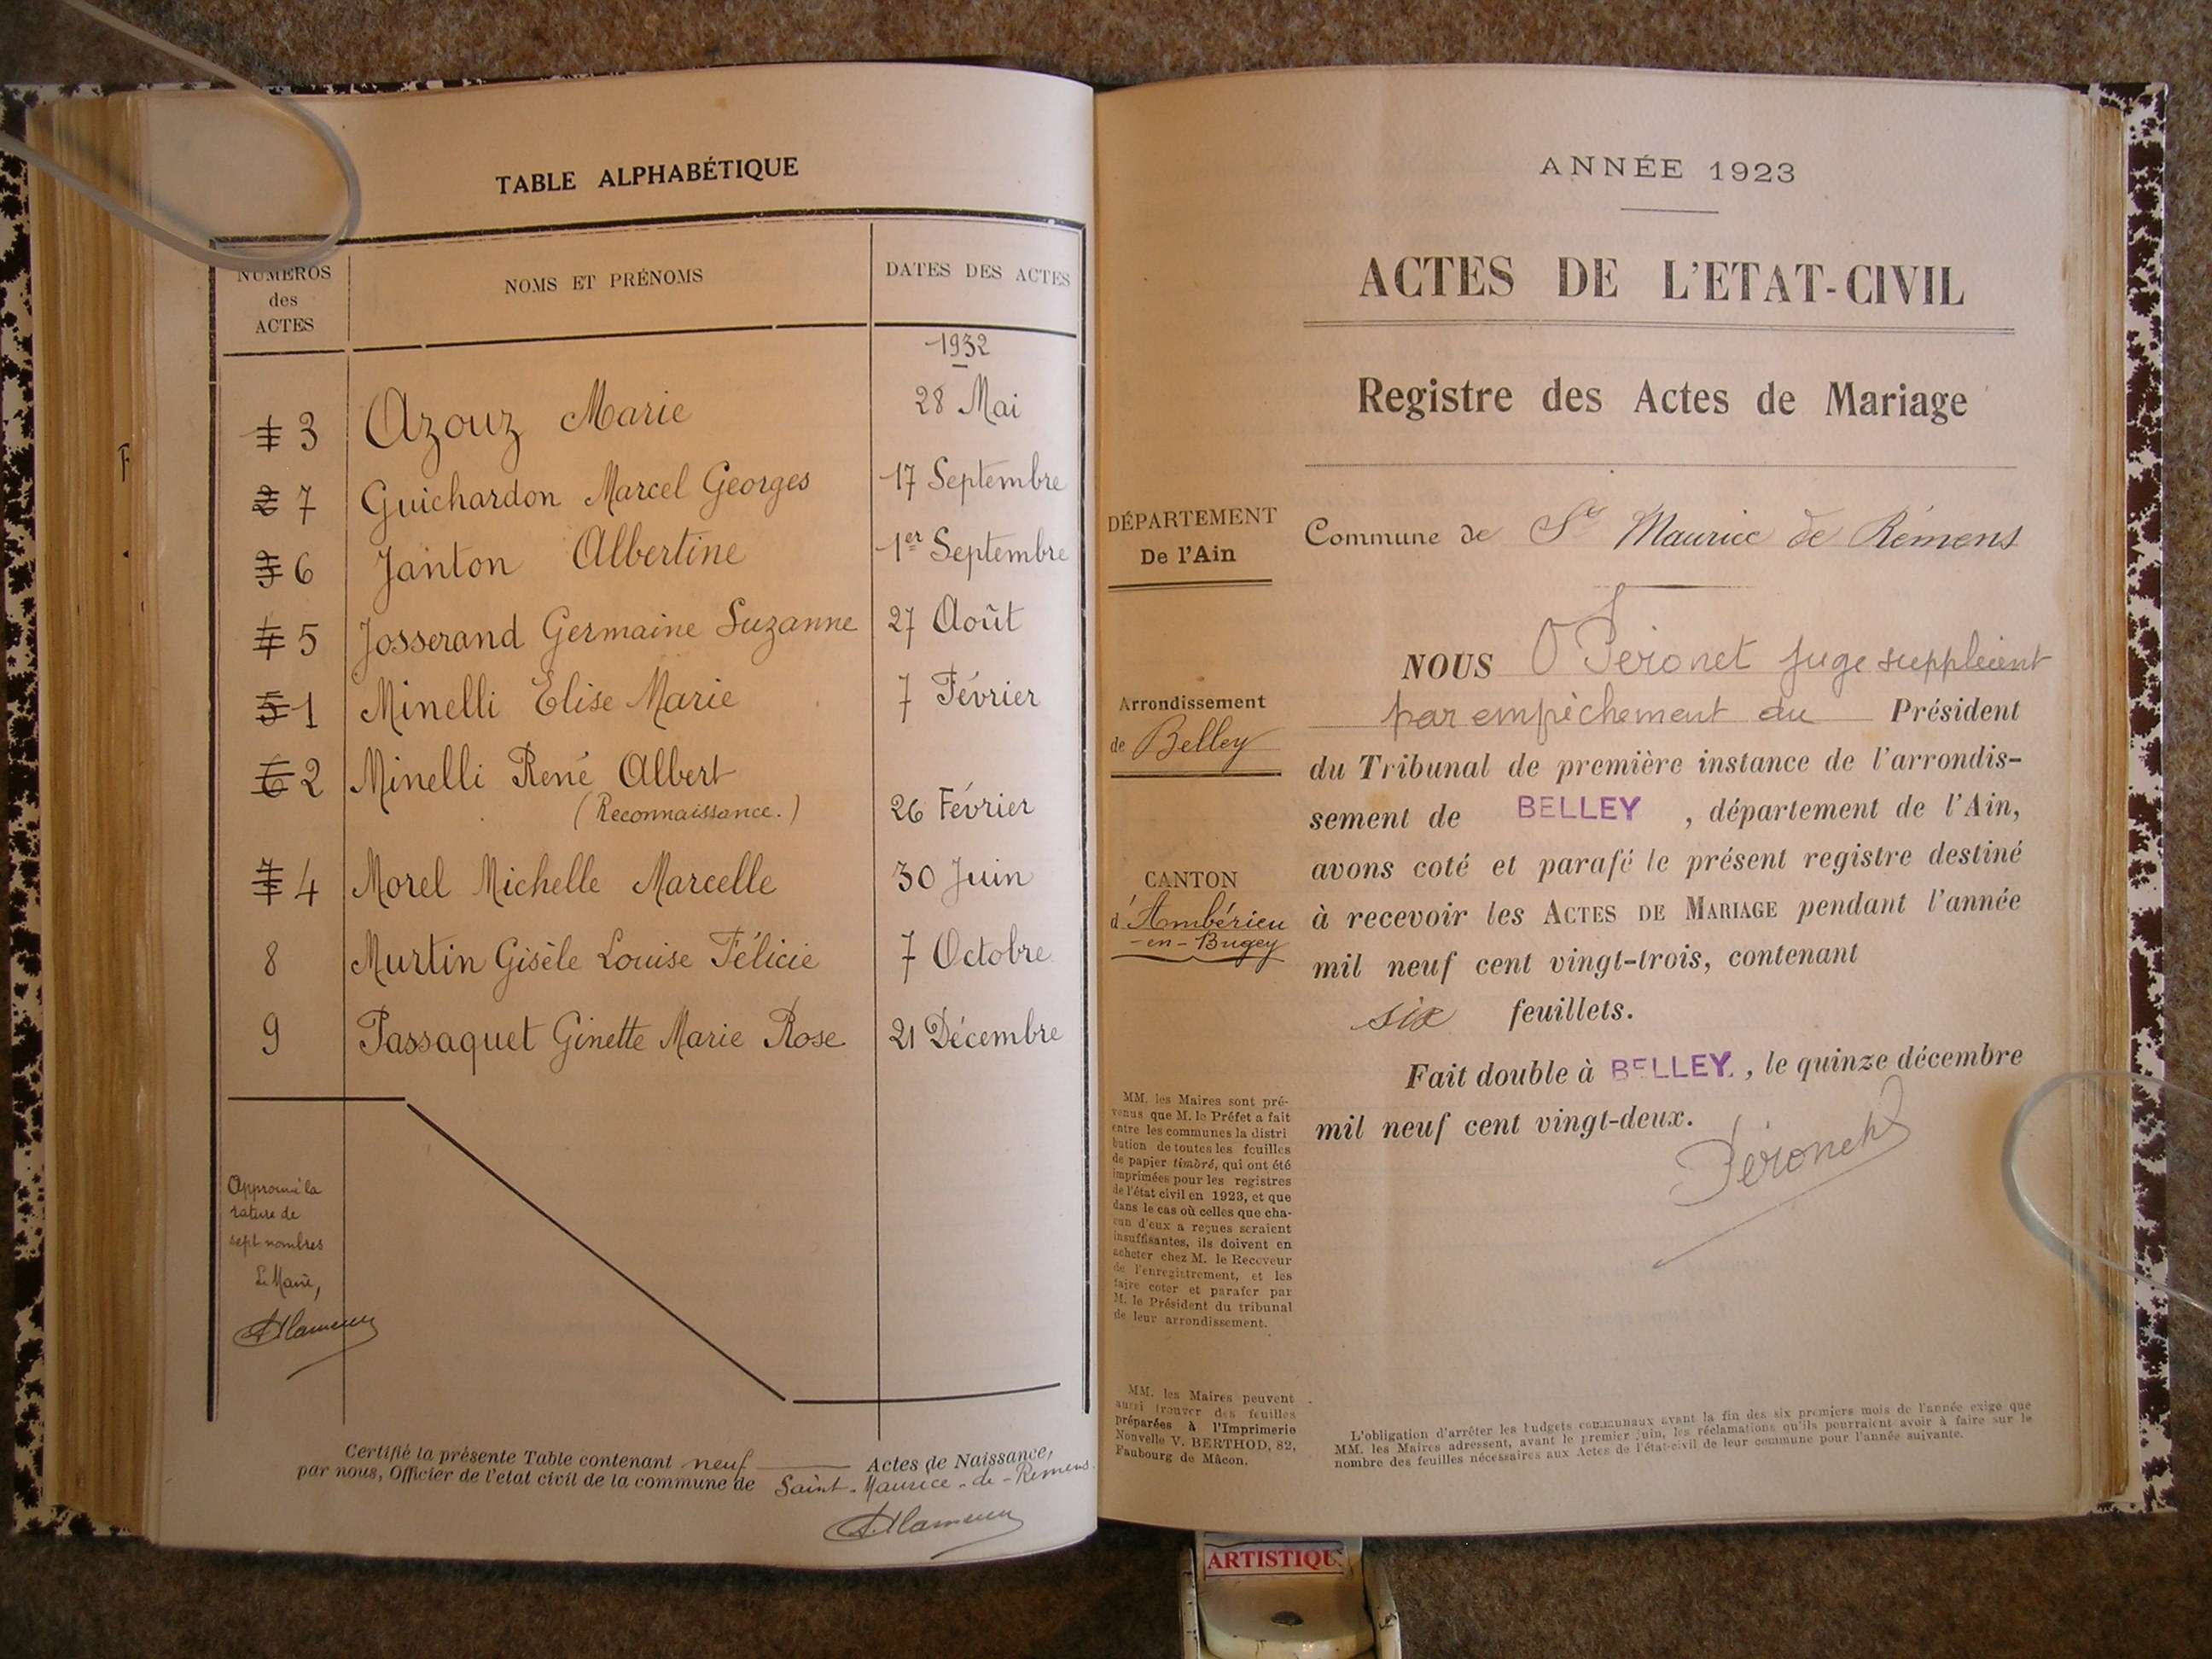 TABLE ALPHABÉTIQUE
NUMÉROS
des
ACTES
NOMS ET PRÉNOMS
DATES DES ACTES
1932
1 3 Azouz Marie 28 Mai
2 7 Guichardon Marcel Georges 17 Septembre
3 6 Janton Albertine 1er Septembre
4 5 Josserand Germaine Suzanne 27 Août
5 1 Minelli Elise Marie 7 Février
6 2 Minelli René Albert
(Reconnaissance.) 26 Février
7 4 Morel Michelle Marcelle 30 Juin
8 Murtin Gisèle Louise Félicie 7 Octobre
9 Passaquet Ginette Marie Rose 21 Décembre
Approuvé la
rature de
sept nombres
Le Maire,
Certifié la présente Table contenant neuf Actes de Naissance,
par nous, Officier de l'etat civil de la commune de Saint-Maurice-de-Remens
ANNÉE 1923
ACTES DE L'ETAT-CIVIL
Registre des Actes de Mariage
DÉPARTEMENT
De l'Ain
Commune de St Maurice de Rémens
Arrondissement
de Belley
CANTON
d'Ambérieu
-en-Bugey
NOUS O Peronet juge suppleant
par empêchement du Président
du Tribunal de première instance de l'arrondis-
sement de BELLEY , département de l'Ain,
avons coté et parafé le présent registre destiné
à recevoir les ACTES DE MARIAGE pendant l'année
mil neuf cent vingt-trois, contenant
six feuillets.
Fait double à BELLEY, le quinze décembre
mil neuf cent vingt-deux.
Péronet
MM. les Maires sont pré-
venus que M. le Préfet a fait
entre les communes la distri
bution de toutes les feuilles
de papier timbré, qui ont été
imprimées pour les registres
de l'état civil en 1923, et que
dans le cas où celles que cha-
cun d'eux a reçues seraient
insuffisantes, ils doivent en
acheter chez M. le Receveur
de l'enregistrement, et les
faire coter et parafer par
M. le Président du tribunal
de leur arrondissement.
MM. les Maires peuvent
aussi trouver des feuilles
préparées à l'Imprimerie
Nouvelle V. BERTHOD, 82,
Faubourg de Mâcon.
L'obligation d'arrêter les budgets communaux avant la fin des six premiers mois de l'année exige que
MM. les Maires adressent, avant le premier juin, les réclamations qu'ils pourraient avoir à faire sur le
nombre des feuilles nécessaires aux Actes de l'état-civil de leur commune pour l'année suivante.
ARTISTIQU